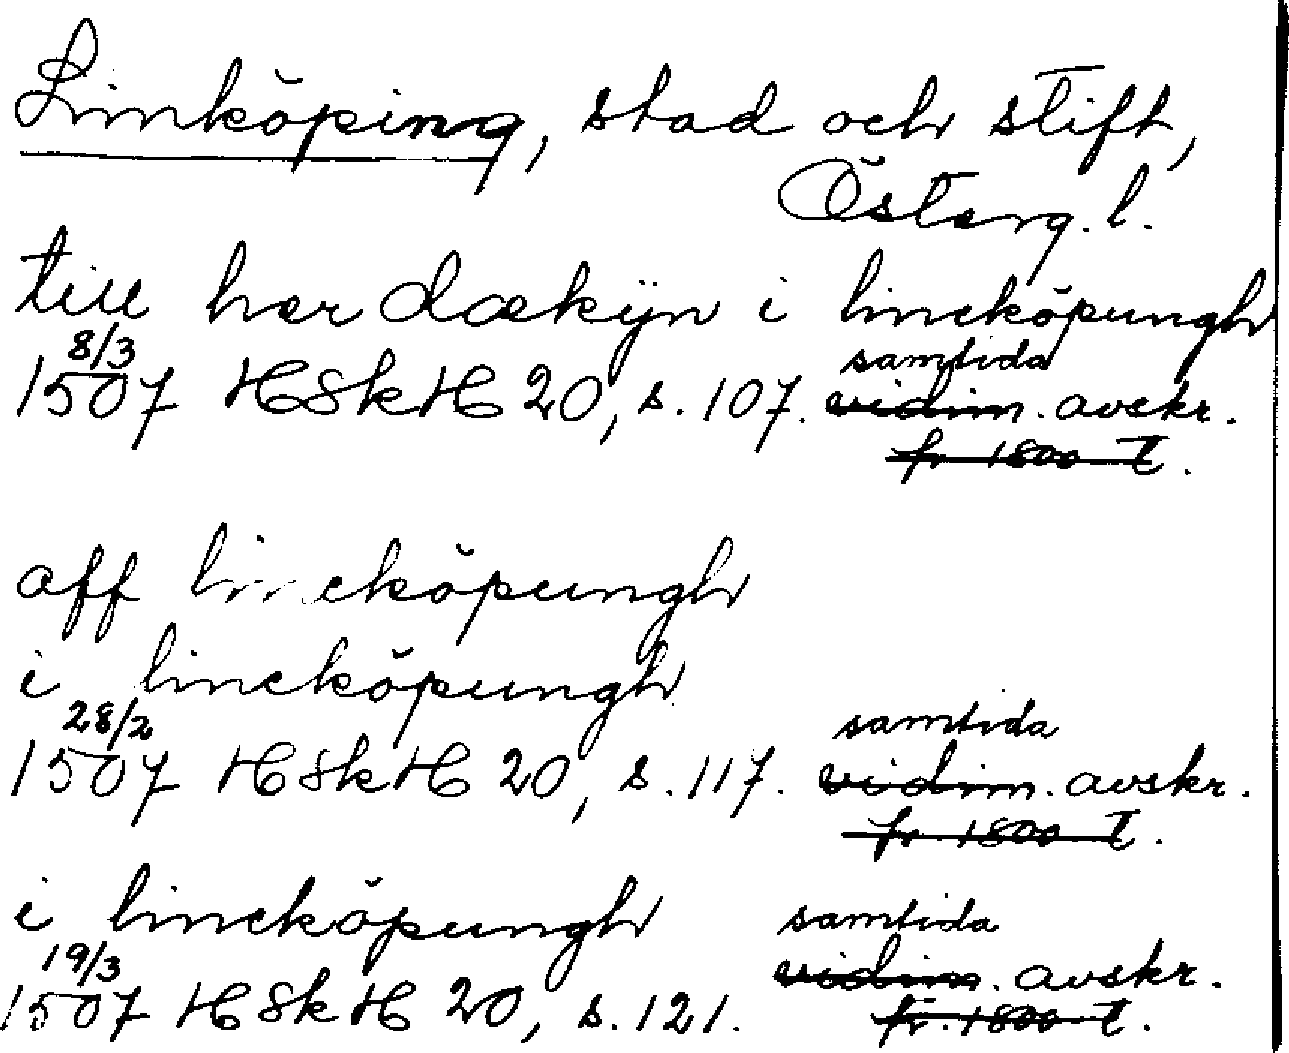 Linköping, stad och stift,
Österg. l.
till her dækijn i lincköpungh
8/3 samtida
1507 HSkH 20, s. 107. vidim. avskr.
fr 1800 t.
aff lincköpungh
i lincköpungh
28/2 samtida
1507 HSkH 20, s. 117. vidim. avskr.
fr. 1800 t.
i lincköpungh samtida
19/3 vidim. avskr.
1507 HSkH 20, s. 121. fr. 1800 t.